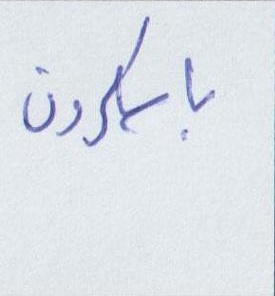 باسکرون